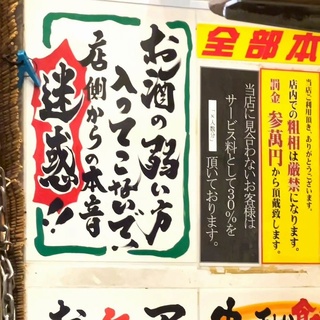 お酒の弱い方
入ってこないで!
店側からの本音
迷惑!!
全部本
当店に見合わないお客様は
サービス料として30%を
頂いております。
当店ご利用頂き、ありがとうございます。
店内での粗相は厳禁になります。
罰金 参萬円から頂戴致します。